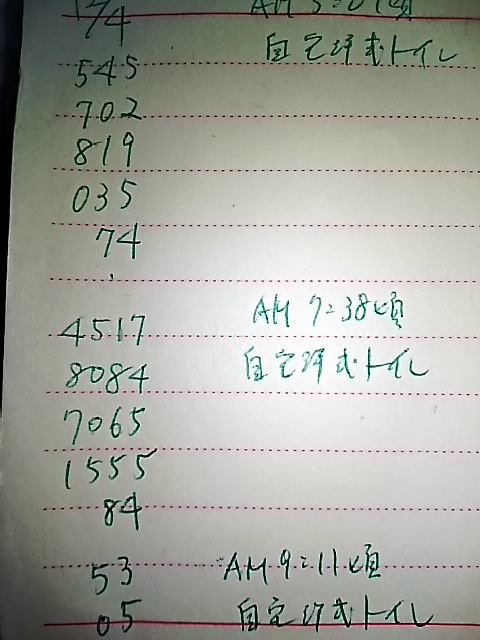 174 AM 5:01頃
545 自宅洋式トイレ
702
819
035
74
4517 AM 7:38頃
8084 自宅洋式トイレ
7065
1555
84
53 AM 9:11頃
05 自宅洋式トイレ